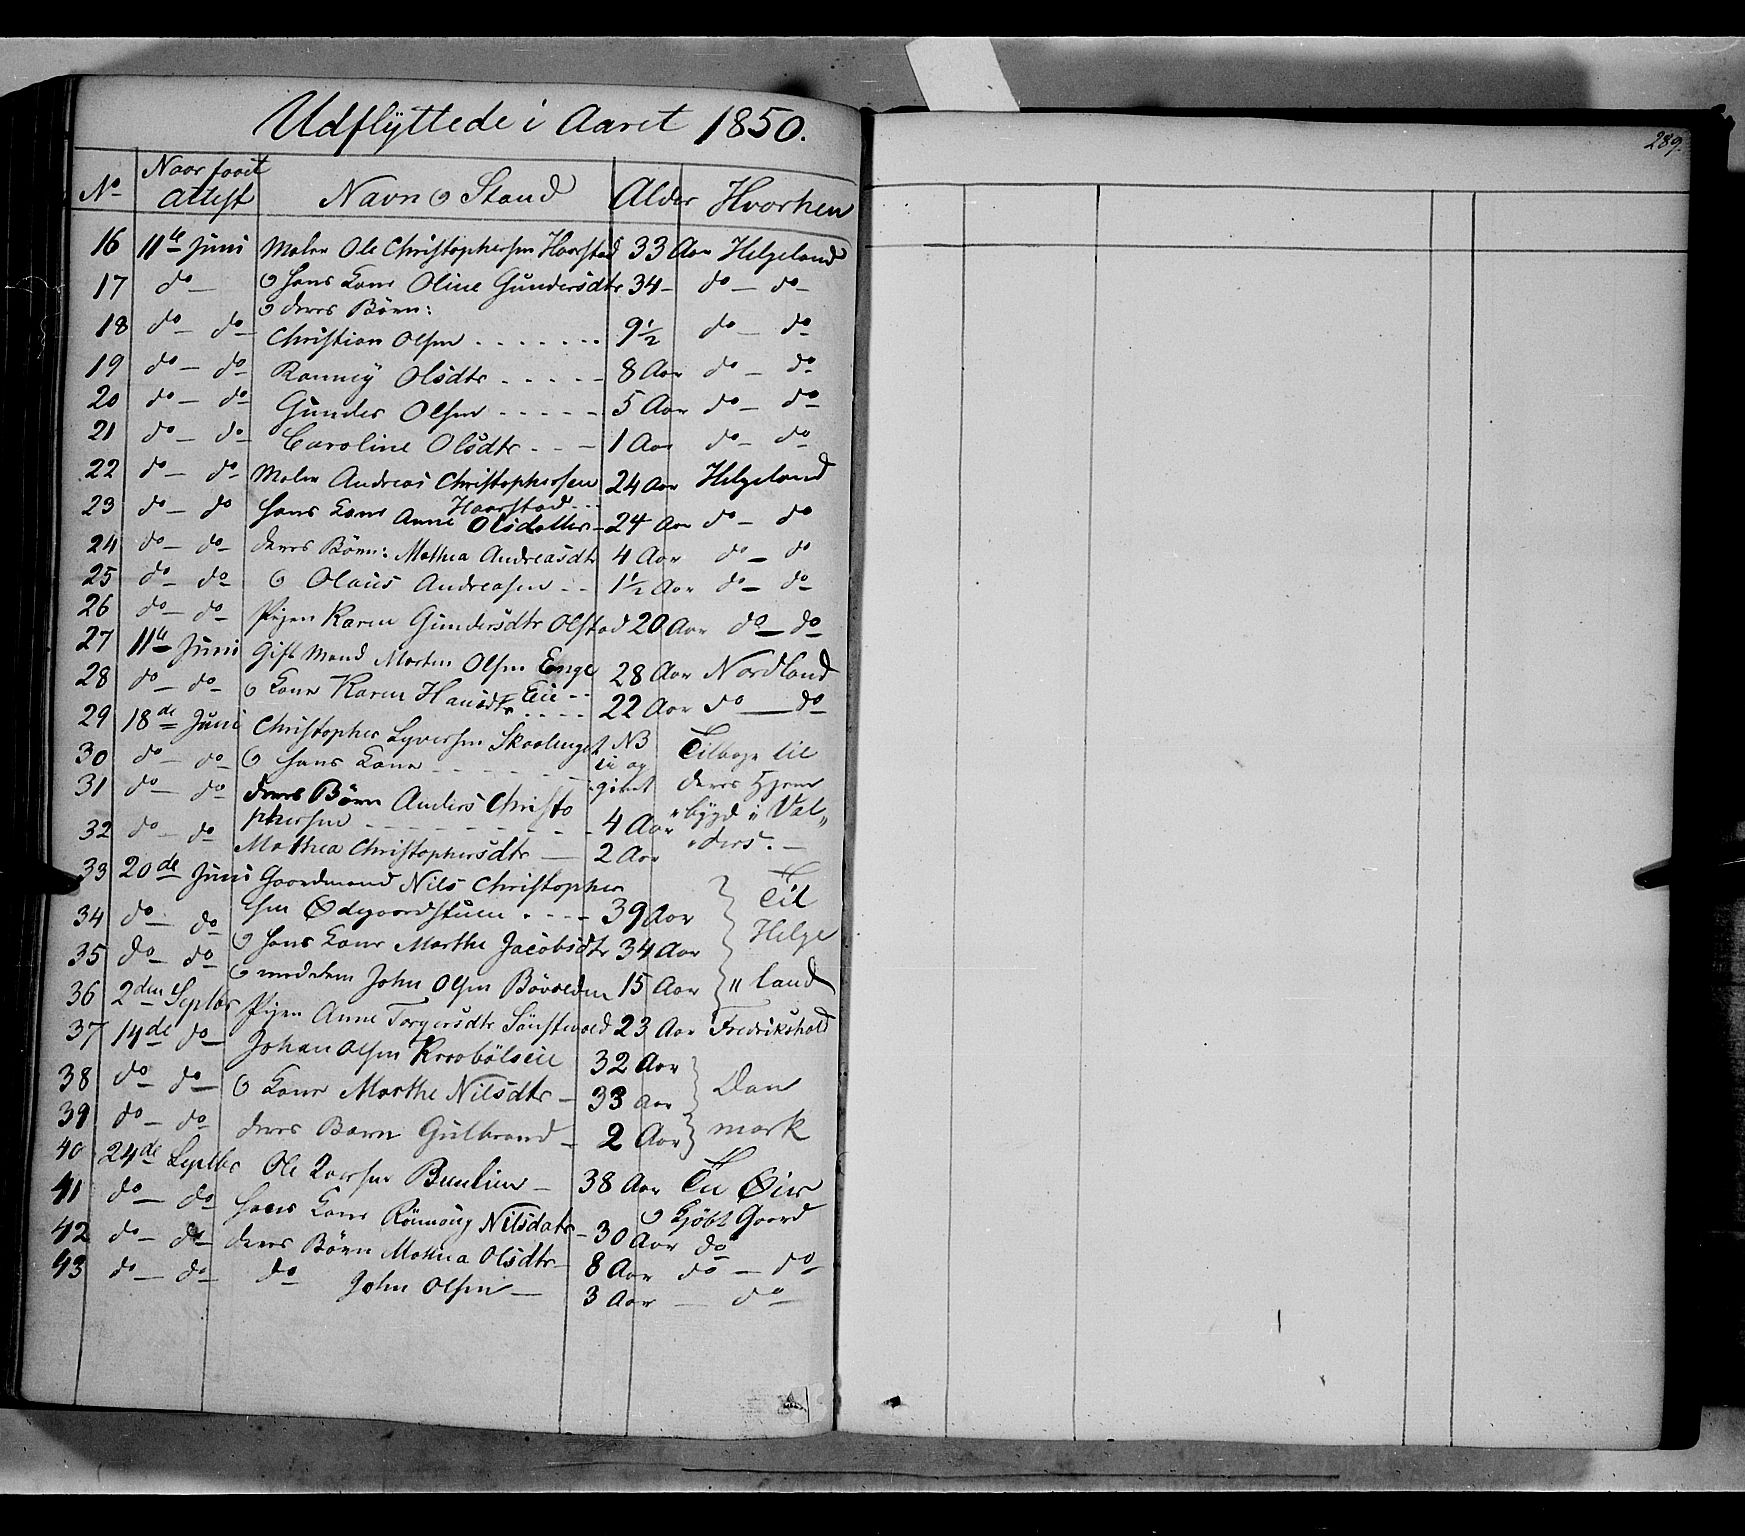 Udflyttede i Aaret 1850.
289.
No Naar faaet Attest Navn & Stand Alder Hvorhen
16 11te Juni Maler Ole Christophersen Haarstad 33 Aar Helgeland
17 do — & hans Kone Oline Gundersdtr 34 — do — do —
& deres Børn:
18 do — do Christian Olsen . . . . . . . 9½ do — do
19 do — do Ronney Olsdtr . . . . . 8 Aar do — do
20 do — do Gunder Olsen - - - - - 5 Aar do — do
21 do — do Caroline Olsdtr - - — 1 Aar do — do
22 do — do Maler Andreas Christophersen 24 Aar Helgeland
Haarstad - -
23 do — do hans Kone Anne Olsdatter — 24 Aar do — do
24 do — do deres Børn: Mathea Andreasdtr 4 Aar do — do
25 do — do & Olaus Andreasen - - 1½ Aar do — do
26 do — do Pigen Karen Gundersdtr Olstad 20 Aar do — do
27 11te Juni Gift Mand Morten Olsen Enge 28 Aar Nordland
Eie - -
28 do — do & Kone Karen Hansdtr - - - - 22 Aar do — do
29 18de Juni Christopher Syversen NB Tilbage til
30 do — do & hans Kone - - - - - - deres Hjem
31 do — do deres Børn Anders Christo
phersen - - - - - - - - - 4 Aar "bygd i Val"
32 do — do Mathea Christophersdtr — 2 Aar "ders. —
33 20de Juni Gaardmand Nils Christopher
sen Ødegaardstuen . - - - 39 Aar Til
34 do — do & hans Kone Marthe Jacobsdtr 34 Aar Helge
35 do — do & med dem John Olsen 15 Aar " land
36 2den Septbr Pigen Anne Torgersdtr 23 Aar Fredrikshald
37 14de do — Johan Olsen Kraabøleie 32 Aar
38 do — do — & Kone Marthe Nilsdtr — 33 Aar Dan
39 do — do deres Barn Gulbrand — 2 Aar mark
40 24de Septbr Ole 38 Aar Til Øier
41 do — do hans Kone Rønnoug Nilsdatr — 30 Aar & kjøbt Gaard
do
42 do — do deres Børn Mathea Olsdtr — 8 Aar do — do
43 do — do do John Olsen — 3 Aar — do —